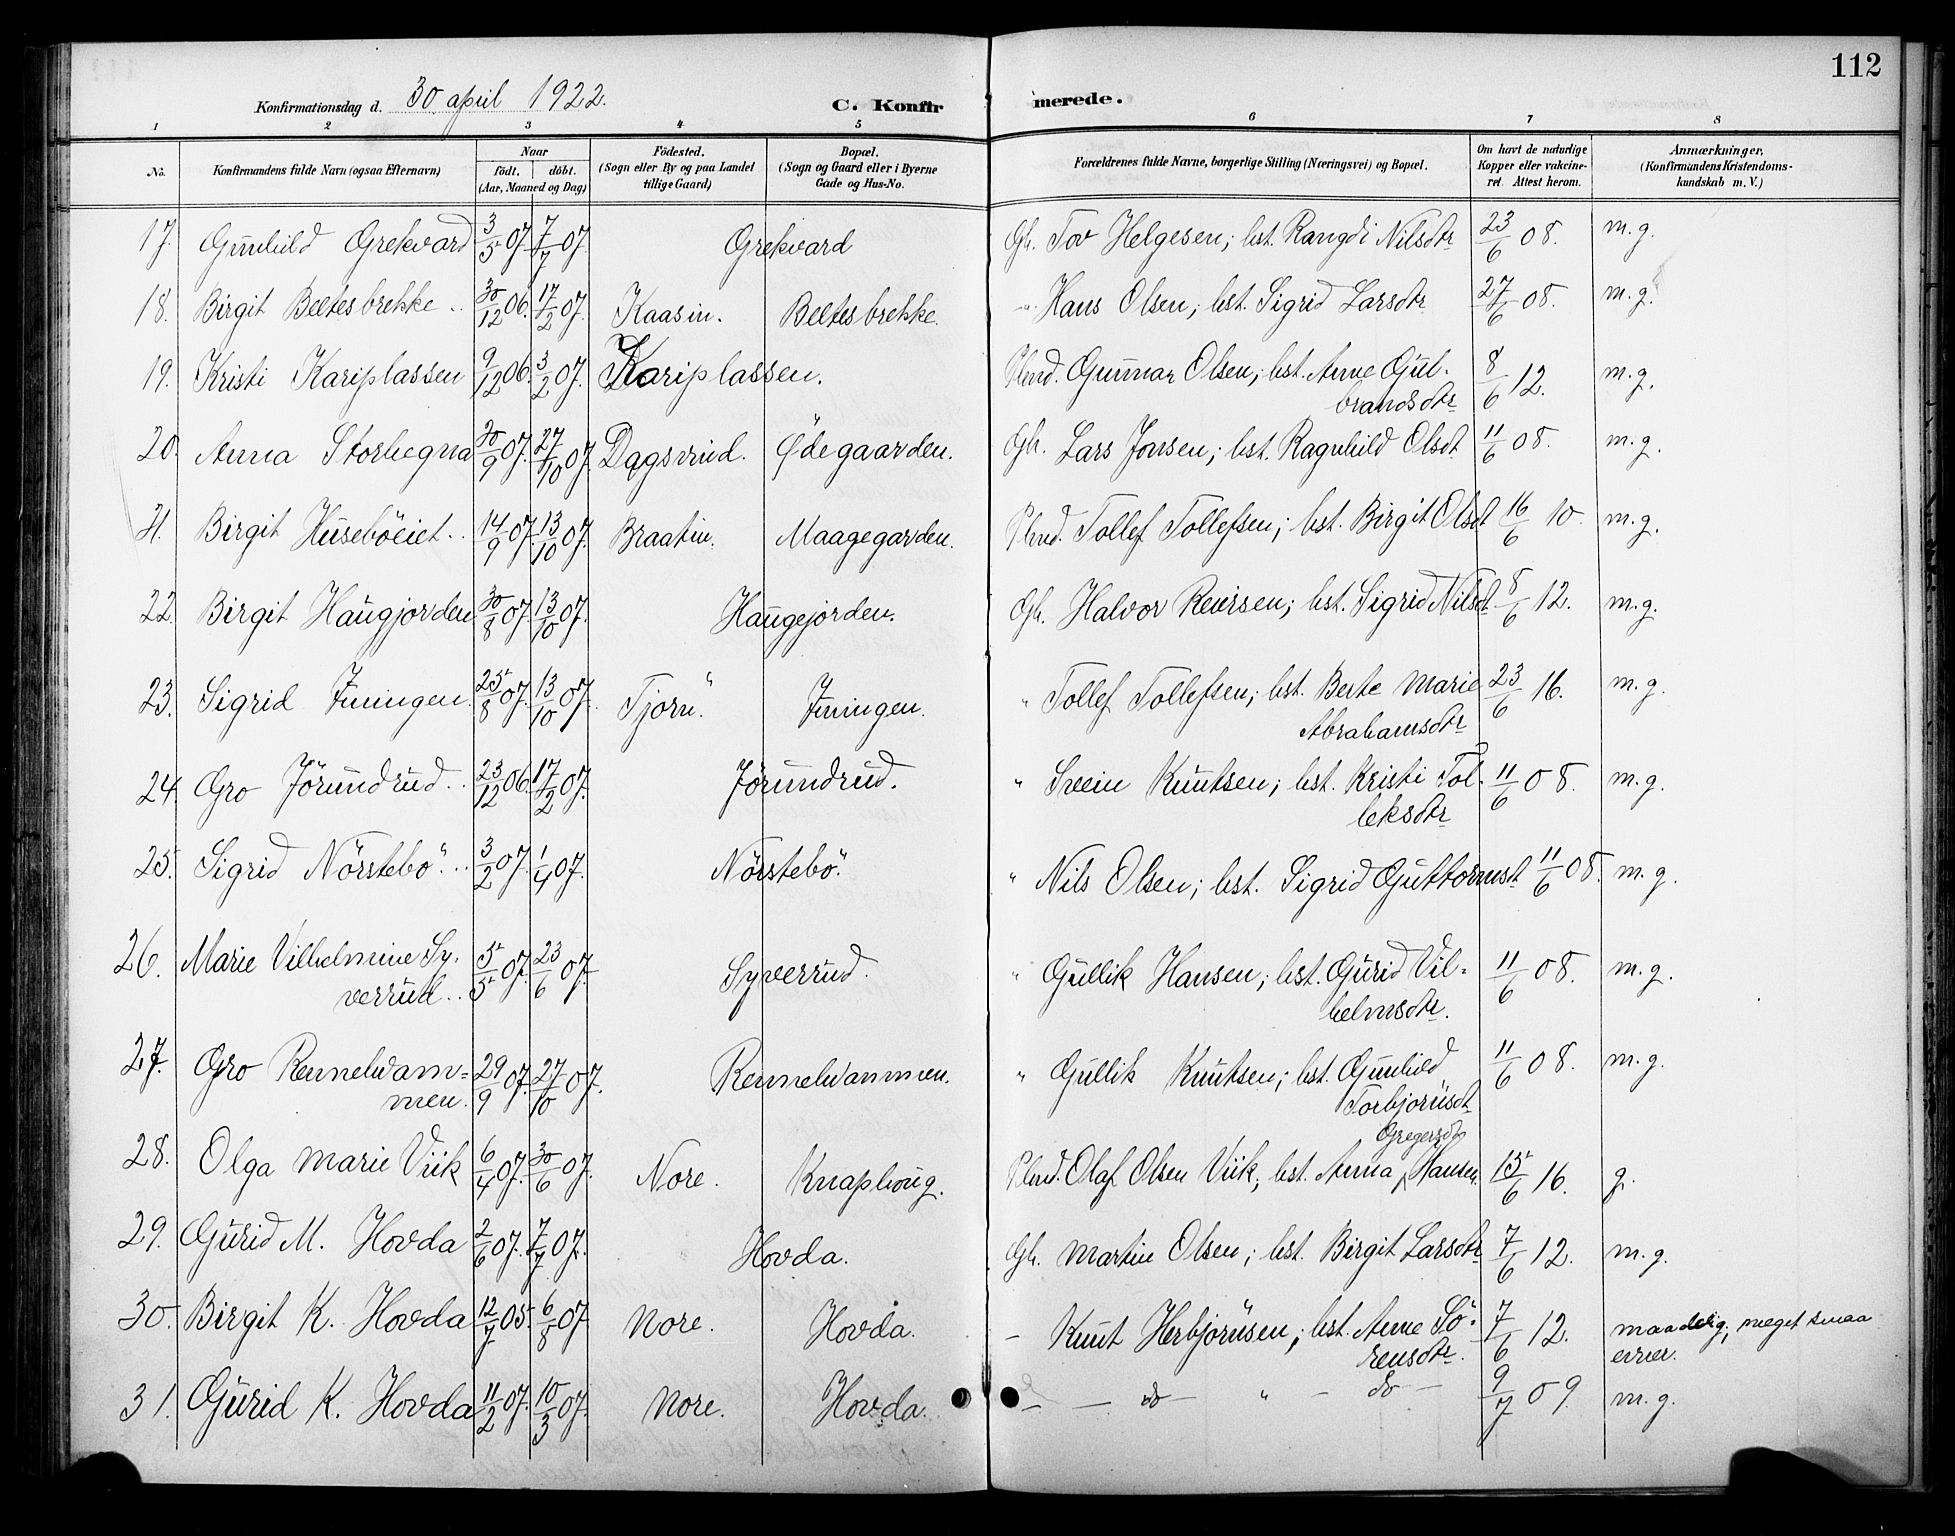 112
Konfirmationsdag d. 30 april 1922.
C. Konfirmerede.
1 2 3 4 5 6 7 8
No. Konfirmandens fulde Navn (ogsaa Efternavn) Naar født. døbt. (Aar, Maaned og Dag) Fødested. (Sogn eller By og paa Landet tillige Gaard) Bopæl. (Sogn og Gaard eller i Byerne Gade og Hus-No. Forældrenes fulde Navne, borgerlige Stilling (Næringsvei) og Bopæl. Om havt de naturlige Kopper eller vakcineret. Attest herom. Anmærkninger. (Konfirmandens Kristendomskundskab m. V.)
17. Gunhild Grekvard 3/5 07. 7/7 07. Grekvard Gh. Tov Helgesen; hst. Rangdi Nilsdtr 23/6 08. m.g.
18. Birgit Beltesbrekke .. 30/12 06. 17/2 07. Kaasin. Beltesbrekke. " Hans Olsen; hst. Sigrid Larsdtr 27/6 08. m.g.
19. Kristi Kariplassen 9/12 06. 3/2 07. Kariplassen. Plmd. Gunnar Olsen; hst. Anne Gul-
brandsdtr 8/6 12. m.g.
20. Anna Storhegna 30/9 07. 27/10 07. Dagsrud. Ødegaarden. Gh. Lars Jonsen; hst. Ragnhild Olsdt 11/6 08. m.g.
21. Birgit Huseböeiet .. 14/9 07. 13/10 07. Braatin. Maagegarden. Plmd. Tollef Tollefsen; hst. Birgit Olsdt 16/6 10. m.g.
22. Birgit Haugjorden 30/8 07. 13/10 07. Haugejorden. Gh. Halvor Reiersen; hst. Sigrid Nilsdt 8/6 12. m.g.
23. Sigrid Juningen. 25/8 07. 13/10 07. Tjörn. Juningen. " Tollef Tollefsen; hst. Berte Marie
Abrahamsdtr 23/6 16. m.g.
24. Gro Jörundrud .. 23/12 06. 17/2 07. Jörundrud. " Svein Knutsen; hst. Kristi Tol-
leksdtr 11/6 08. m.g.
25. Sigrid Nörstebö. .. 3/2 07. 1/4 07. Nörstebö. " Nils Olsen; hst. Sigrid Guttormsdt 11/6 08. m.g.
26. Marie Vilhelmine Sy-
verrud .. 5/5 07. 23/6 07. Syverrud. " Gullik Hansen; hst. Gurid Vil-
helmsdtr. 11/6 08. m.g.
27. Gro Rennehvam-
men. 29/9 07. 27/10 07. Rennehvammen. " Gullik Knutsen; hst. Gunhild
Torbjörnsdt 11/6 08. m.g.
Gregersdtr
28. Olga Marie Viik 6/4 07. 30/6 07. Nore. Knaphoug. Plmd. Olaf Olsen Viik; hst. Anna Hansen. 15/6 16. g.
29. Gurid M. Hovda 2/6 07. 7/7 07. Hovda. Gh. Martin Olsen; hst. Birgit Larsdtr 7/6 12. m.g.
30. Birgit K. Hovda 12/7 05. 6/8 07. Nore. Hovda. - Knut Herbjörnsen; hst. Anne Sö-
rensdtr. 7/6 12. maadelig; meget smaa
evner.
31. Gurid K. Hovda 11/2 07. 10/3 07. Nore. Hovda. - - do - " - do - 9/7 09. m.g.